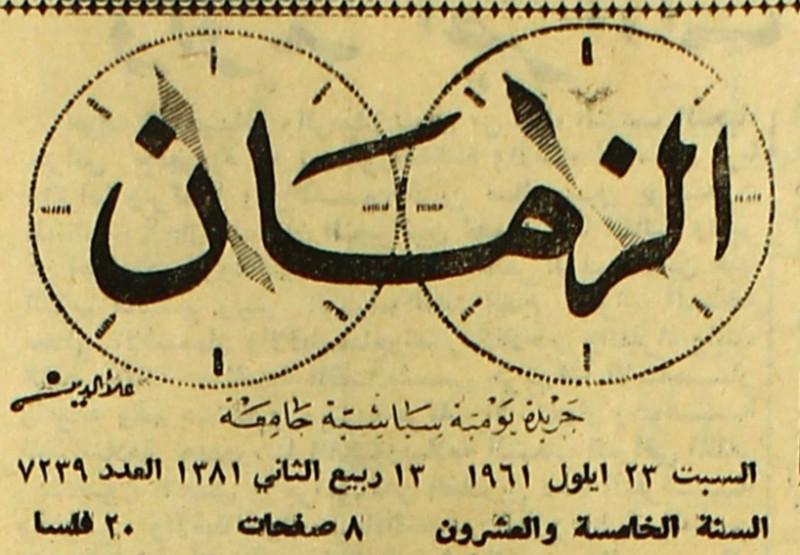 الزمان
علاء الدين
جريدة يومية سياسية جامعة
السبت ٢٣ ايلول ١٩٦١ ١٣ ربيع الثاني ١٣٨١ العدد ٧٢٣٩
السنة الخامسة والعشرون ٨ صفحات ٢٠ فلسا